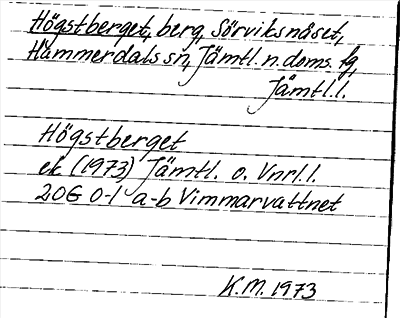 Högstberget, berg Sörviksnåset,
Hammerdals sn, Jämtl. n. doms. fg,
Jämtl. l.
Högstberget
ek (1973) Jämtl. o. Vnrl. l.
20G 0-1 a-b Vimmarvattnet
K.M. 1973